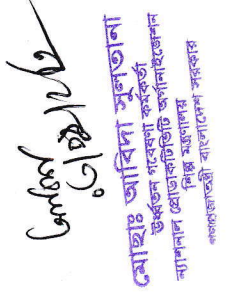 মোছাঃ আবিদা সুলতানা
ঊর্ধ্বতন গবেষণা কর্মকর্তা
ন্যাশনাল প্রোডাকটিভিটি অর্গানাইজেশন
শিল্প মন্ত্রণালয়
গণপ্রজাতন্ত্রী বাংলাদেশ সরকার